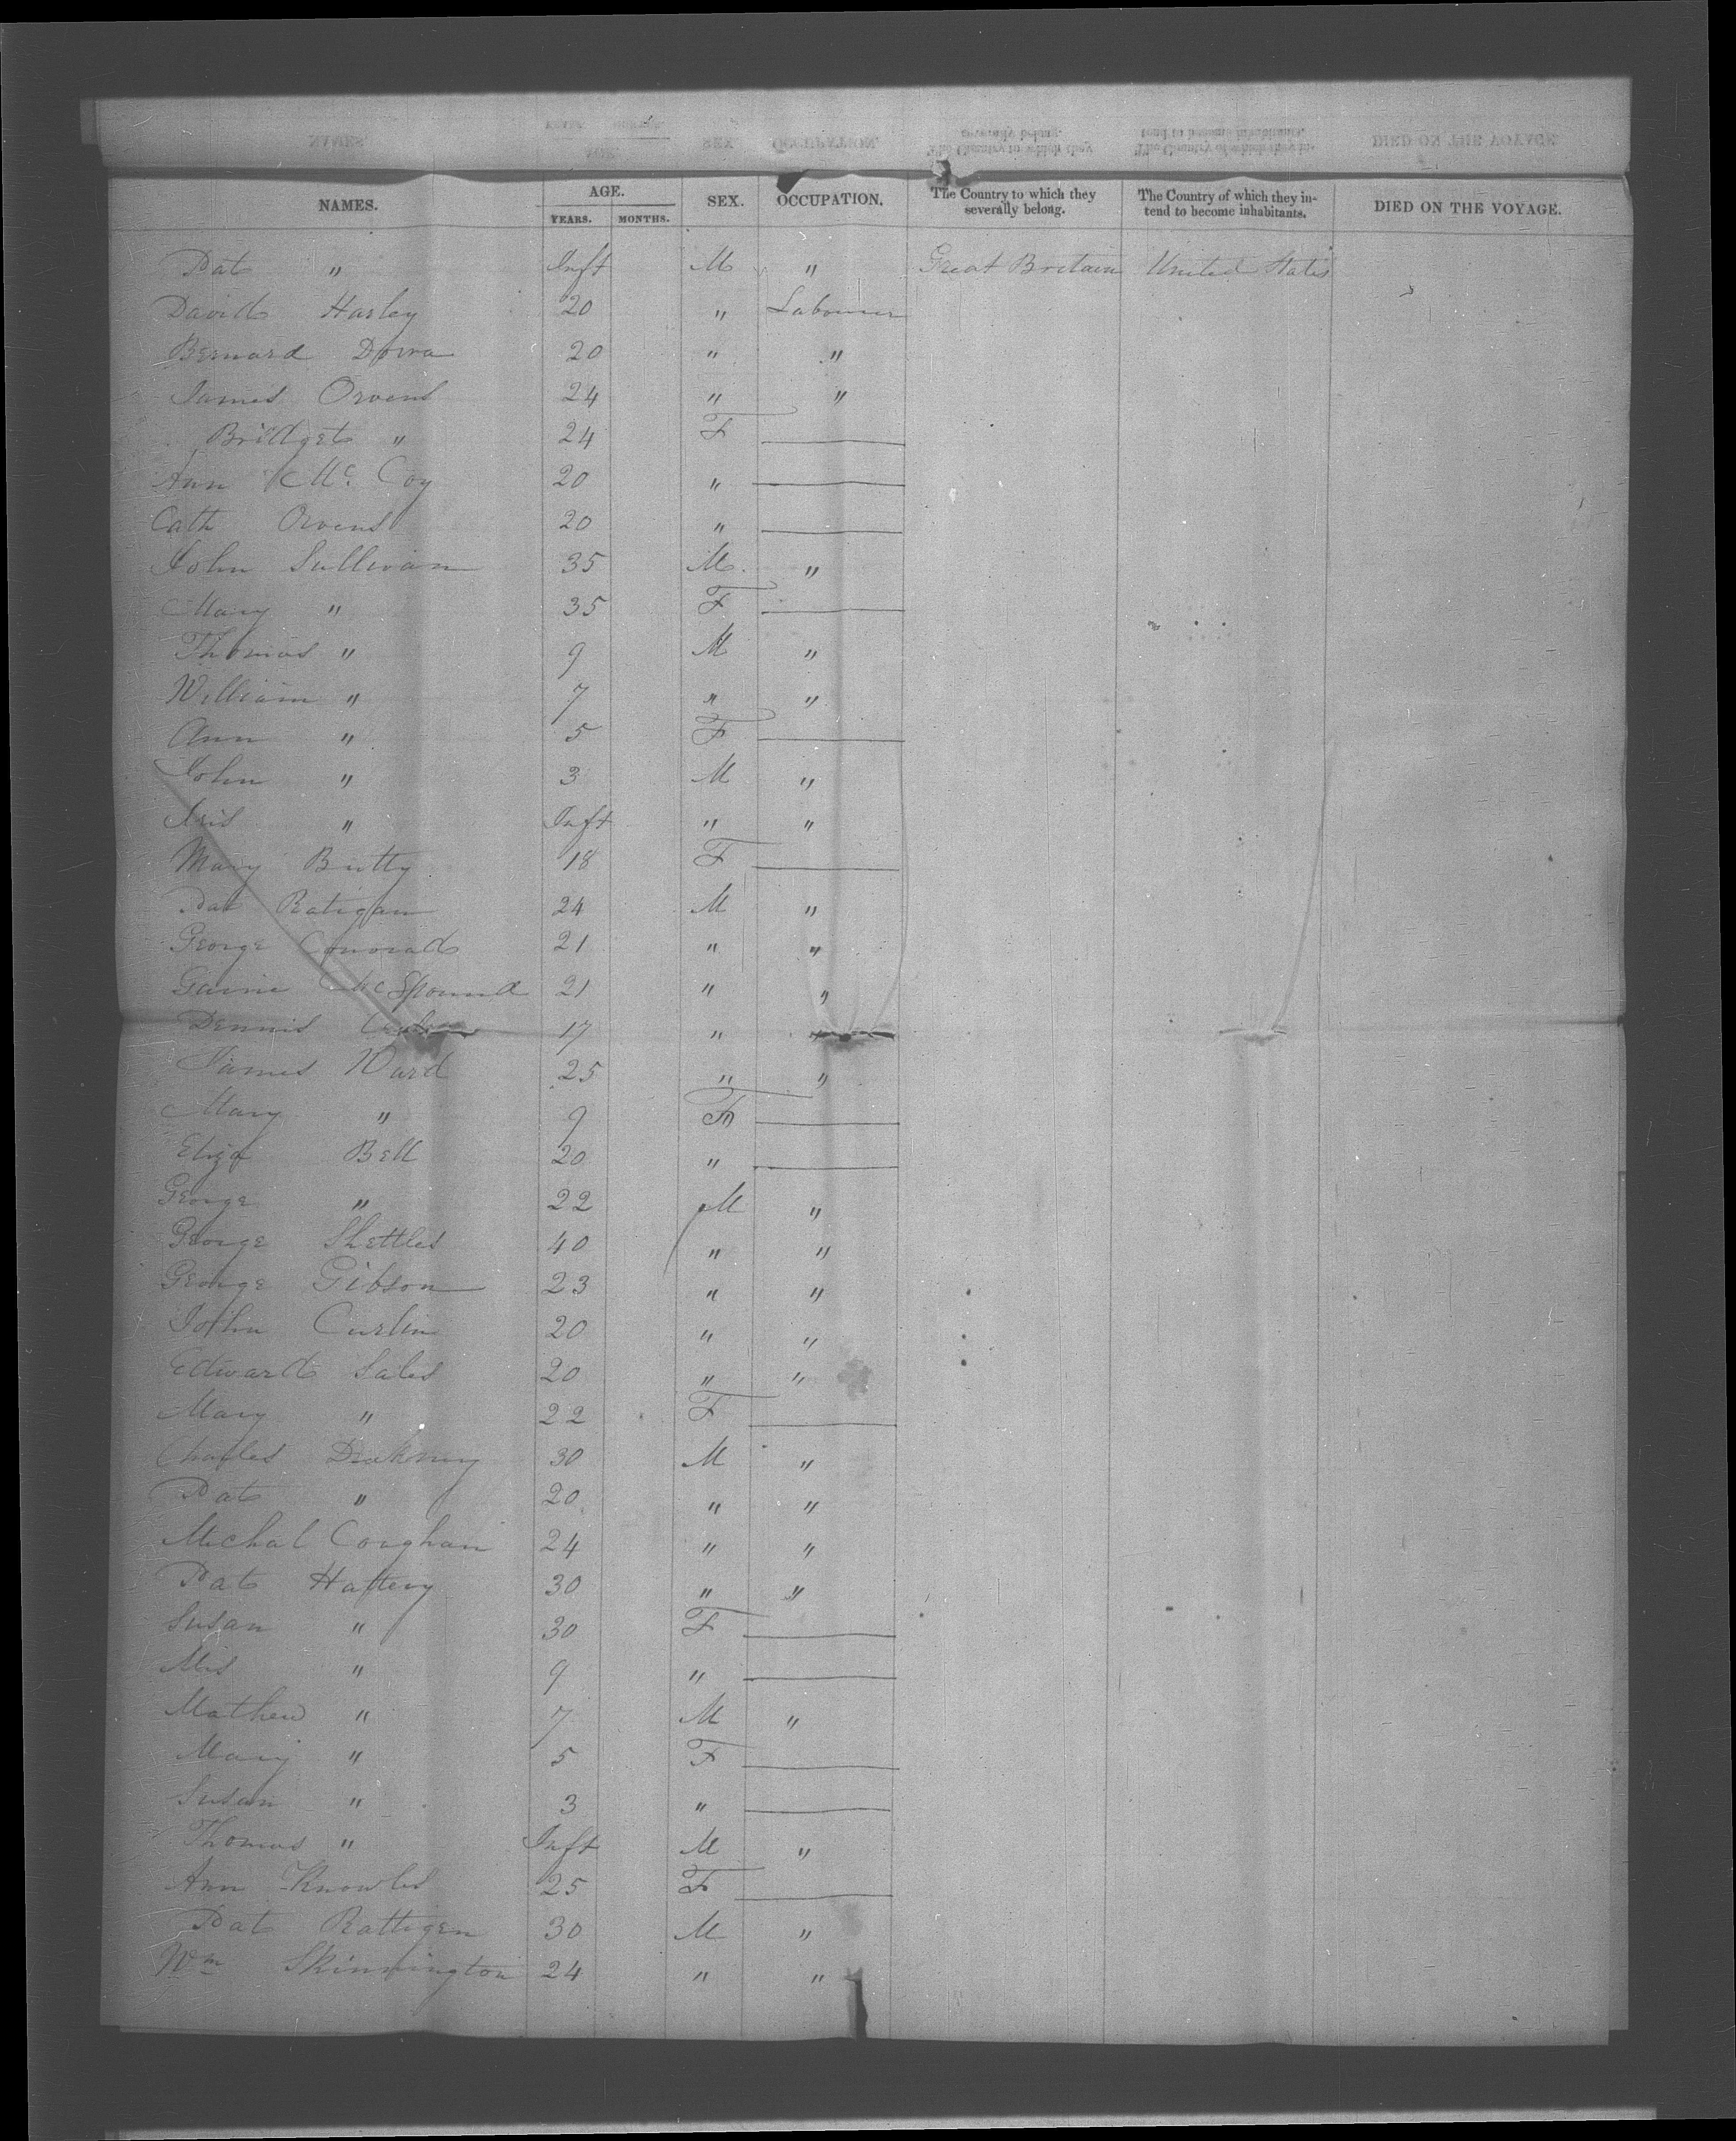 NAMES. AGE. YEARS. MONTHS. SEX. OCCUPATION. The Country to which they severally belong. The Country of which they intend to become inhabitants. DIED ON THE VOYAGE.
Pat " Inft M " Great Britain United States
David Harley 20 " Labourer
Bernard Dowra 20 " "
James Orvens 24 " "
Bridget " 24 F
Ann Mc. Coy 20 "
Cath Orvens 20 "
John Sullivan 35 M. "
Mary " 35 F
Thomas " 9 M "
William " 7 " "
Ann " 5 F
John " 3 M "
" Inft " "
Mary 18 F
Pat Ratigan 24 M "
George Conorad 21 " "
21 " "
Dennis 17 " "
James Ward 25 " "
Mary " 9 F
Eliza Bell 20 "
George " 22 M "
George Shettles 40 " "
George Gibson 23 " "
John Curlin 20 " "
Edward Sales 20 " "
Mary " 22 F
Charles 30 M "
Pat " 20 " "
Michal Coughain 24 " "
Pat Hattery 30 " "
Susan " 30 F
Mis " 9 "
Mathew " 7 M "
Mary " 5 F
Susan " 3 "
Thomas " Inft M "
Ann Knowles 25 F
Pat Rattigen 30 M "
Wm Skinnington 24 " "